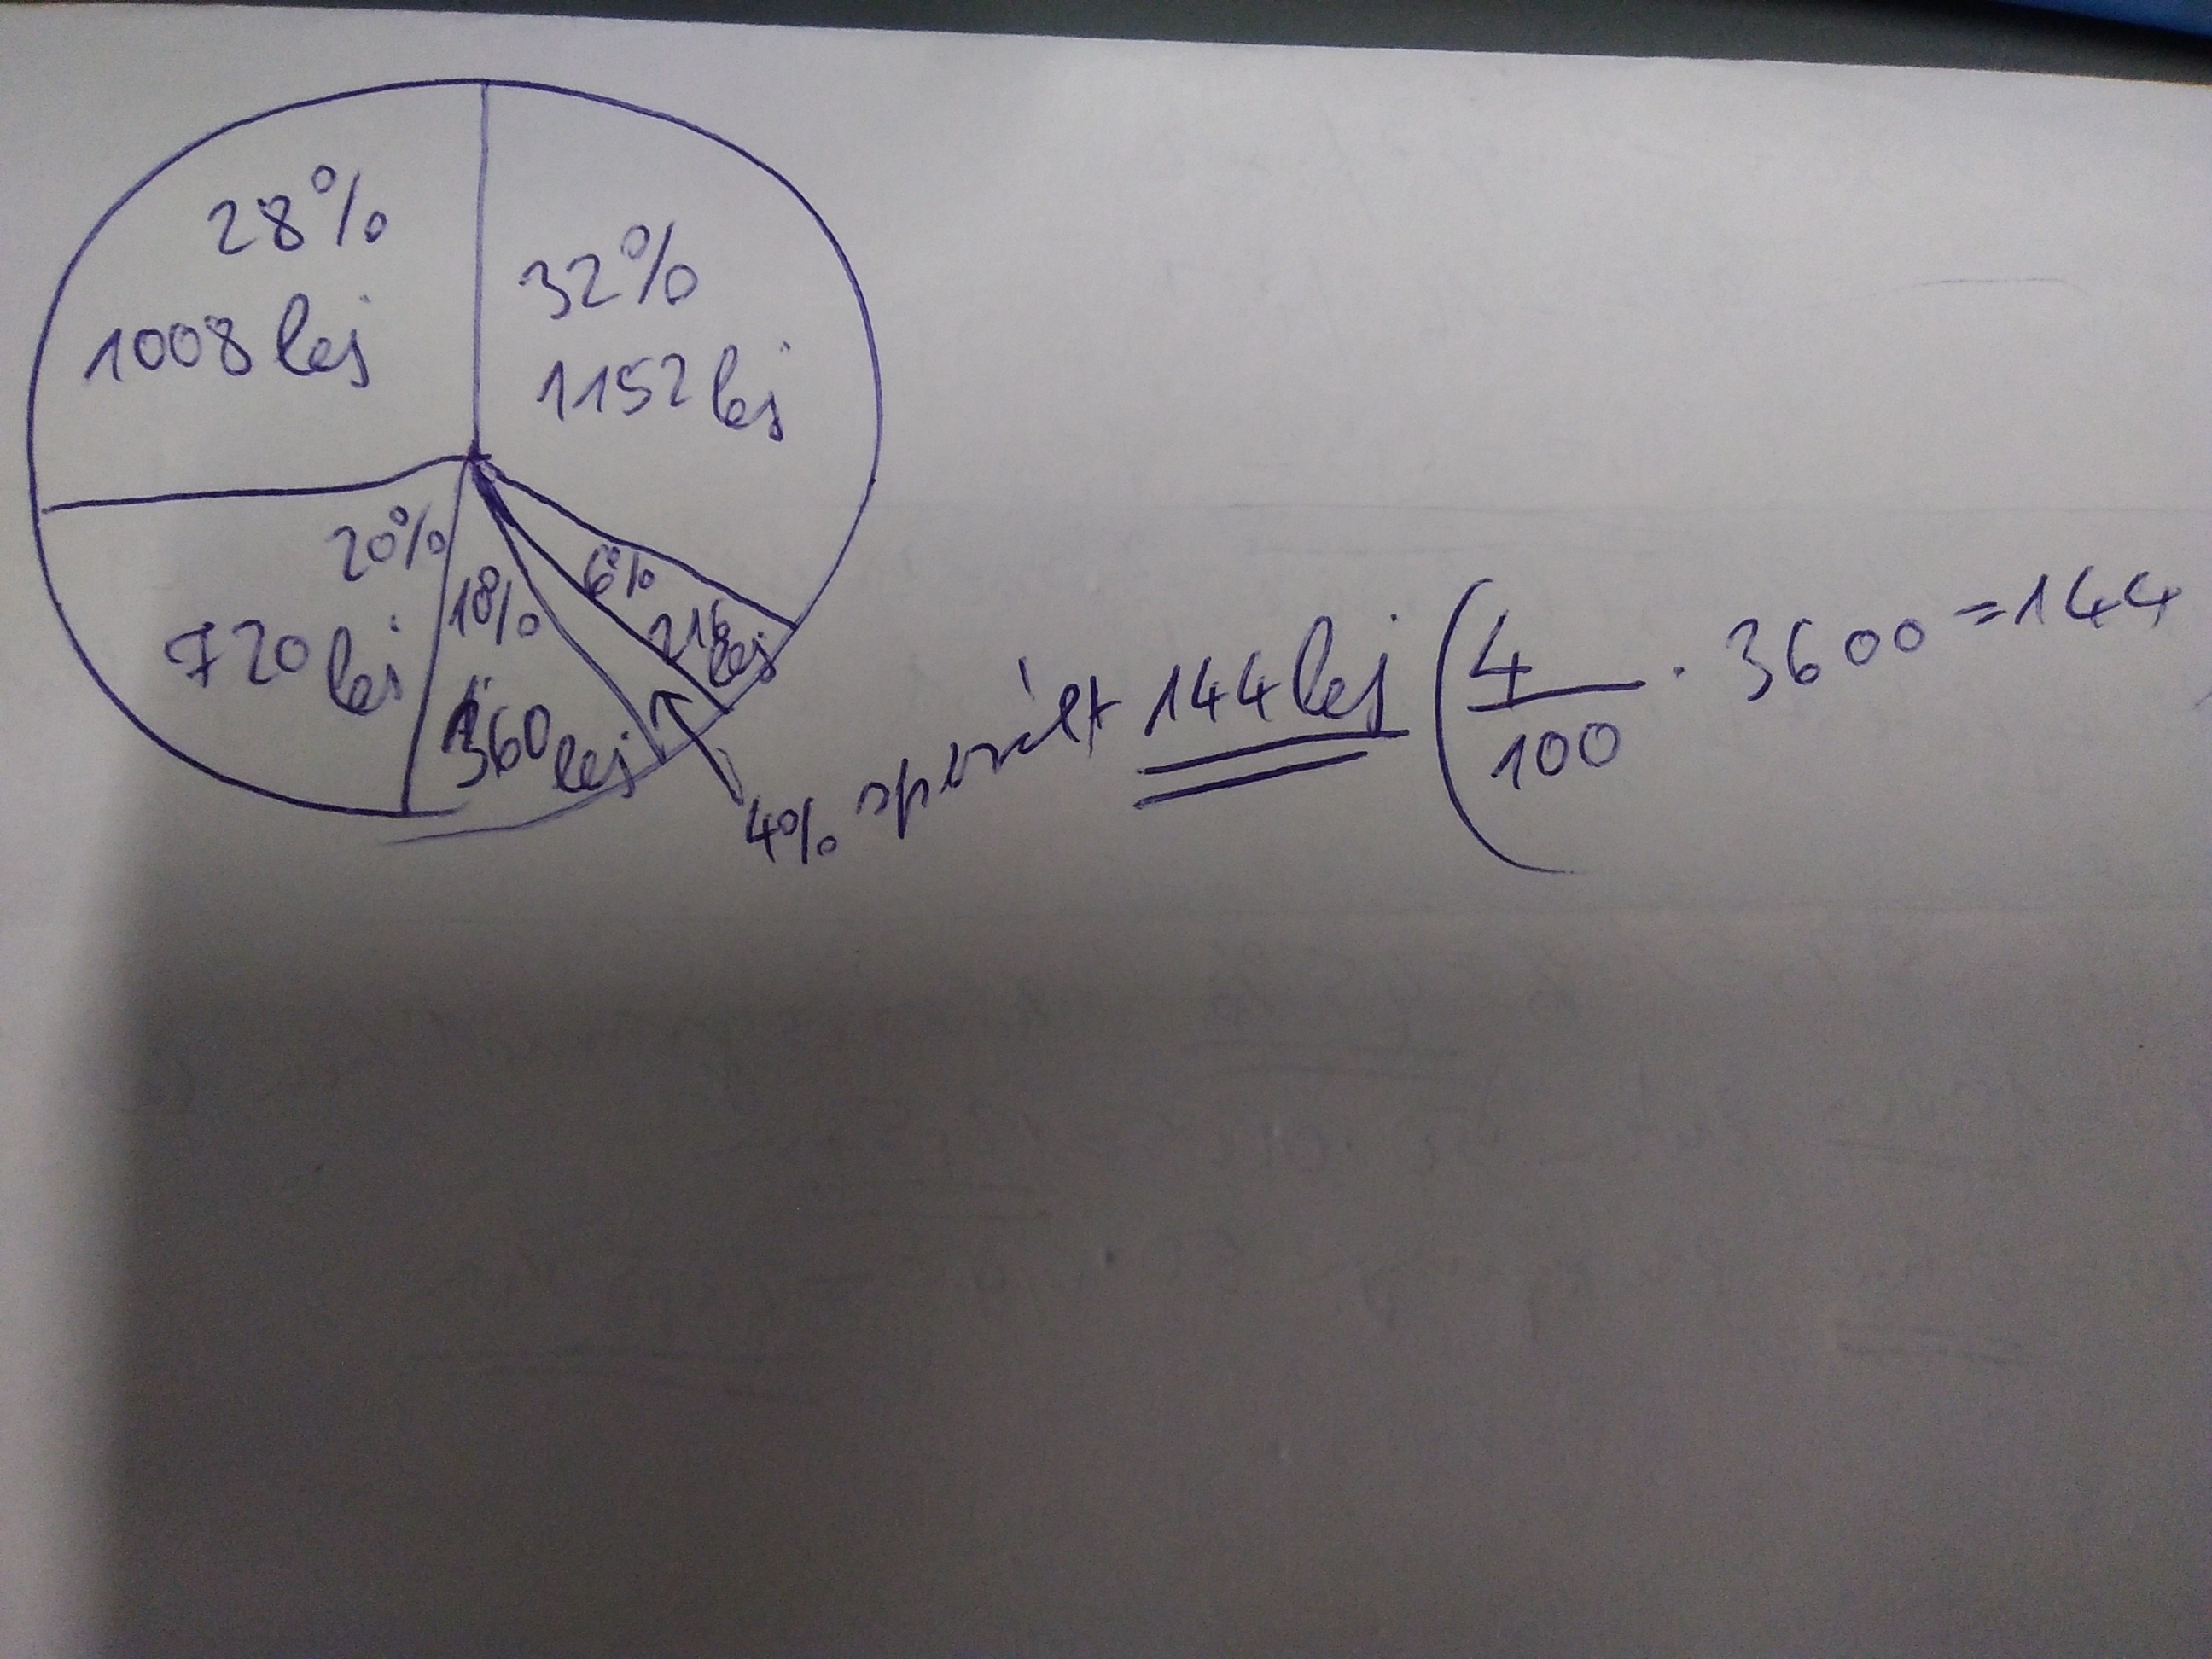 28%
1008 lej
32%
1152 lej
20%
720 lej
10%
360 lej
6%
216 lej
4% spórólt 144 lej ( 4/100 · 3600 = 144